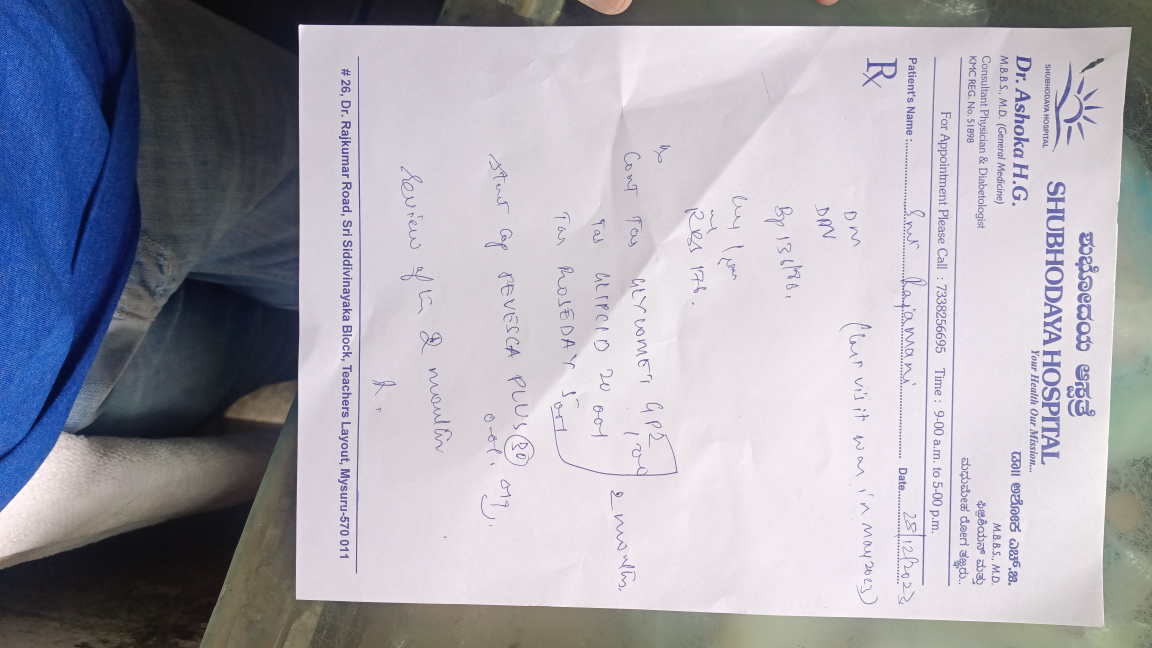 ಶುಭೋದಯ ಆಸ್ಪತ್ರೆ
SHUBHODAYA HOSPITAL
Your Health Our Mission...
SHUBHODAYA HOSPITAL
Dr. Ashoka H.G.
M.B.B.S., M.D. (General Medicine)
Consultant Physician & Diabetologist
KMC REG. No. 51898
ಡಾ|| ಅಶೋಕ ಎಚ್.ಜಿ.
M.B.B.S., M.D.
ಫಿಜಿಶಿಯನ್ ಮತ್ತು
ಮಧುಮೇಹ ರೋಗ ತಜ್ಞರು..
For Appointment Please Call : 7338256695 Time : 9-00 a.m. to 5-00 p.m.
Patient's Name : Smt Rajamani Date 28/12/2023
Rx
(last visit was in May 2023)
DM
BP 136/86.
RBS 176.
Rx
Cont Tab GLYCOMET GP2
Tab 20 001
Tab ROSEDAY 5 001
2 months
Start cap PEVESCA PLUS
Review after 2 months
# 26, Dr. Rajkumar Road, Sri Siddivinayaka Block, Teachers Layout, Mysuru-570 011